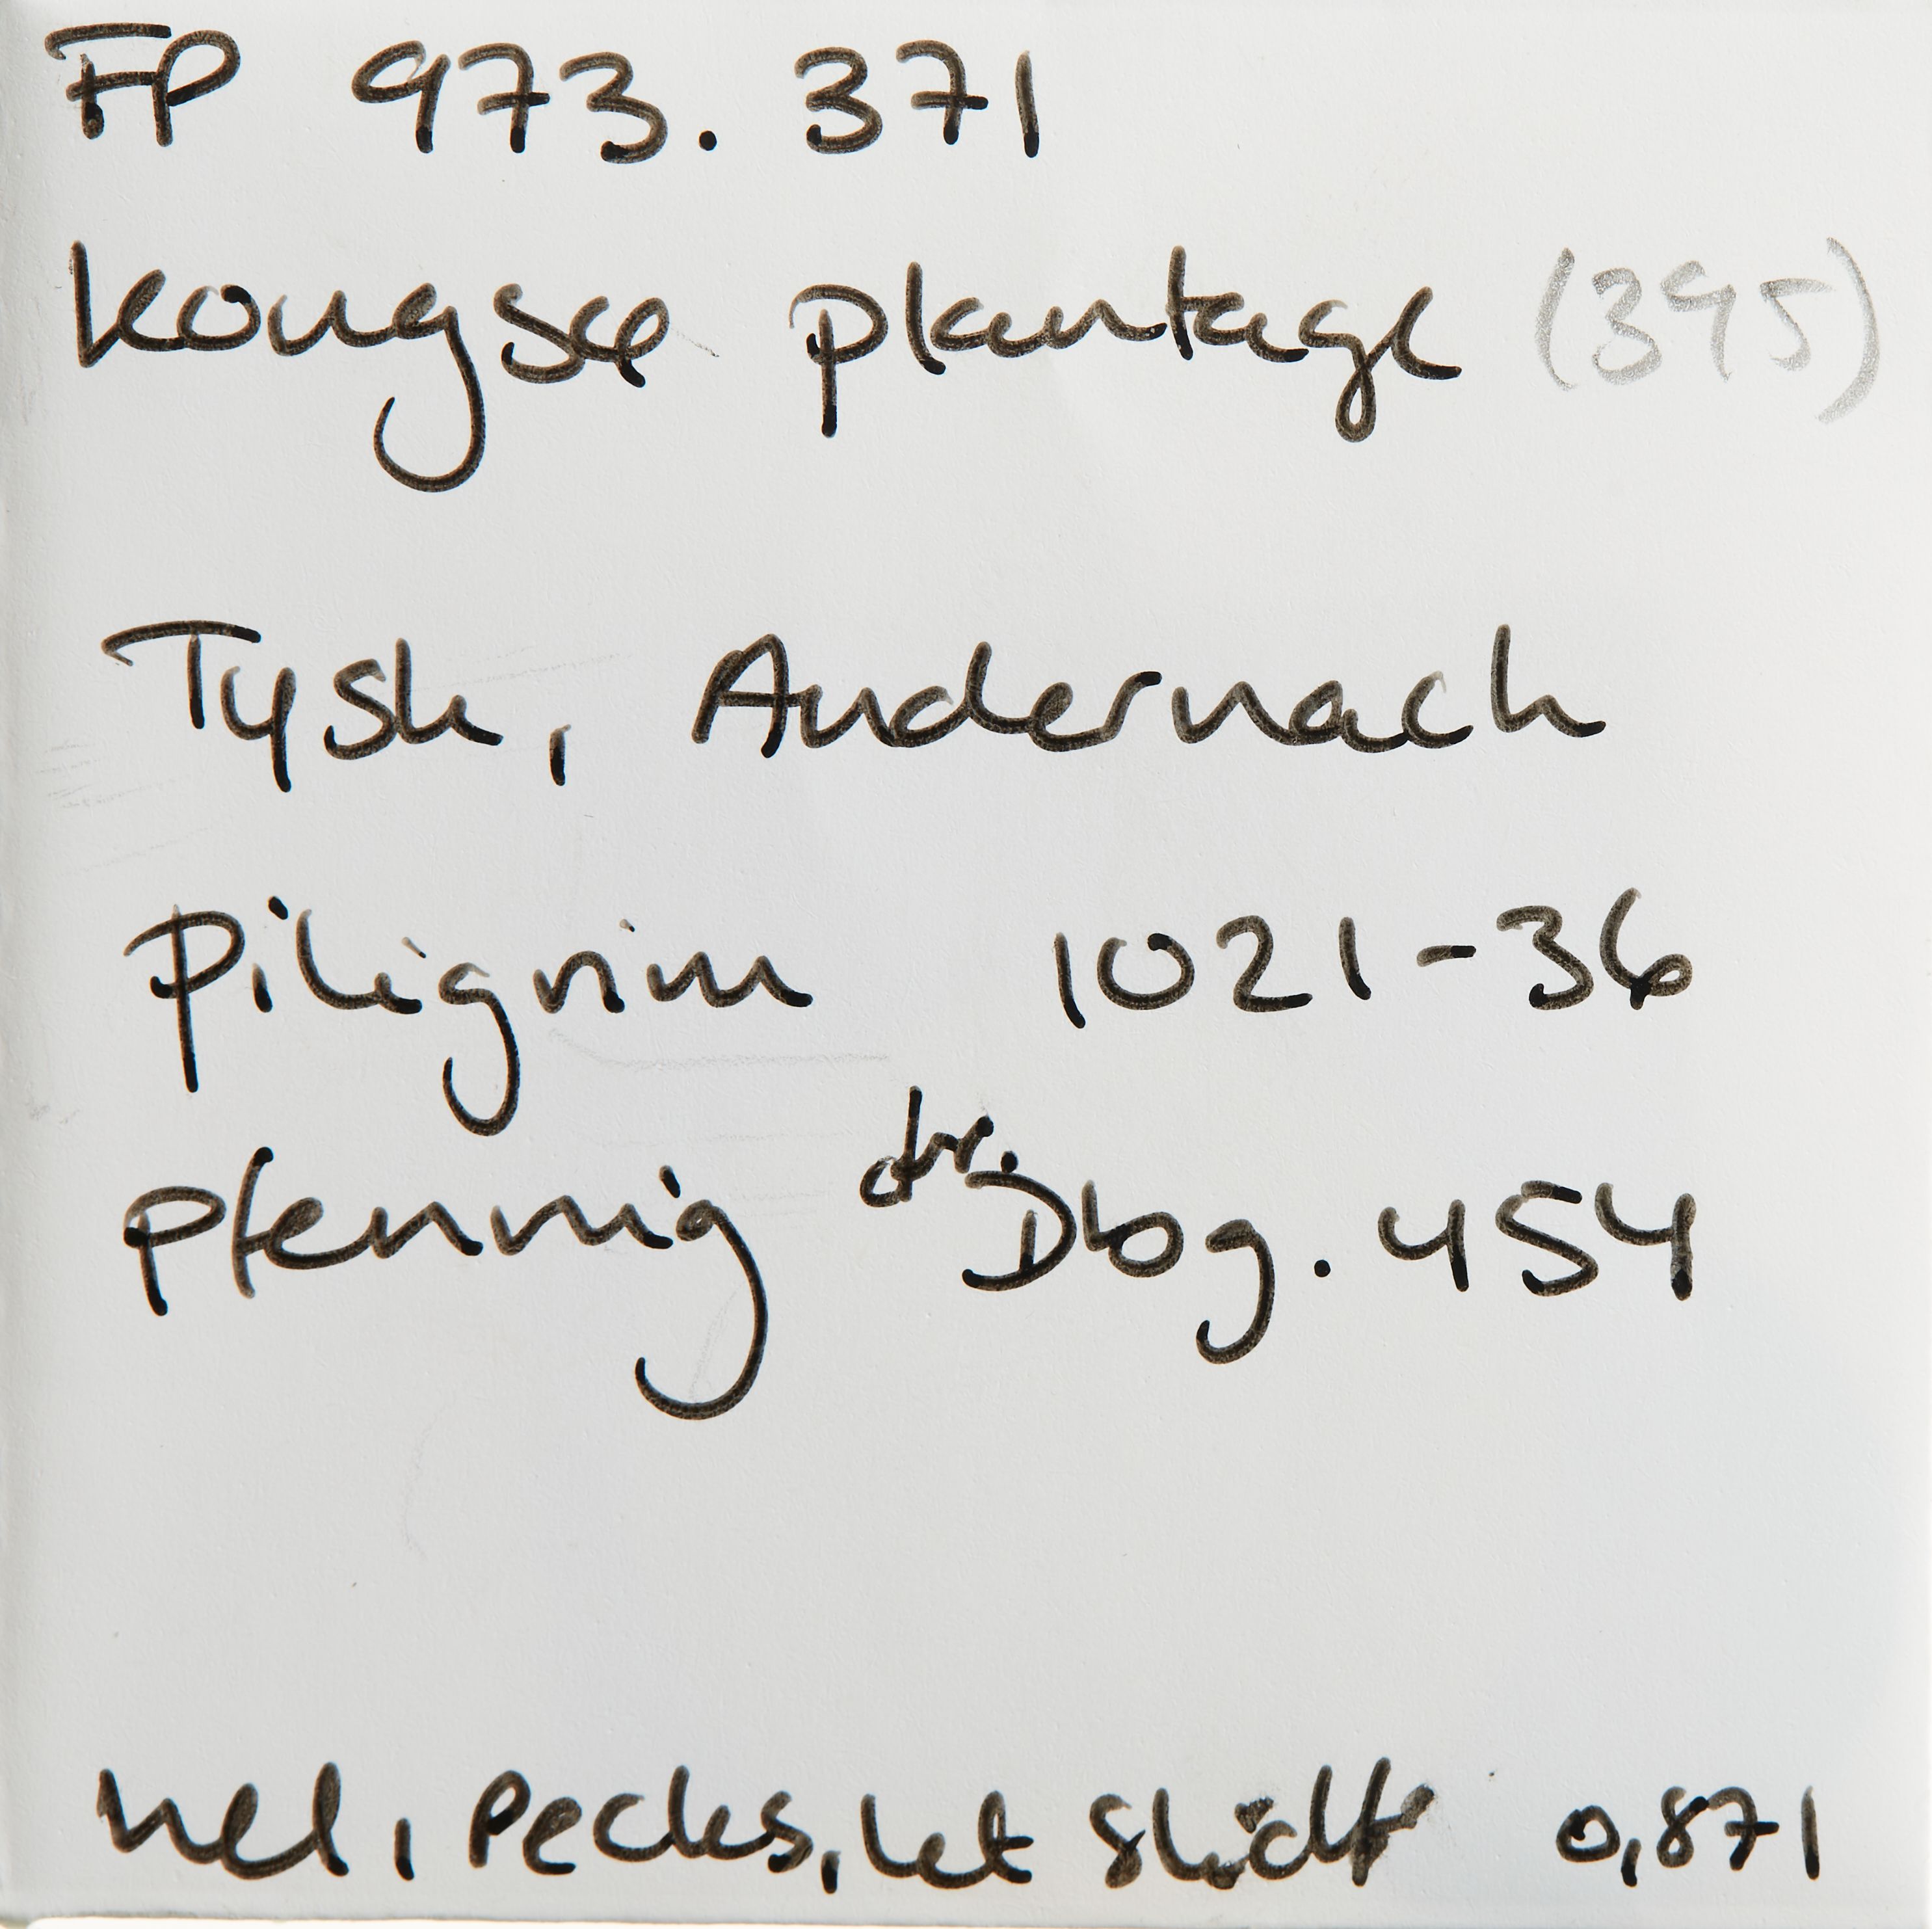 FP 973. 371
Kongsø plantage (395)
Tysk, Andernach
Piligrim 1021-36
pfennig dbr. Dbg. 454
hel, Pecks, let slidt 0,871